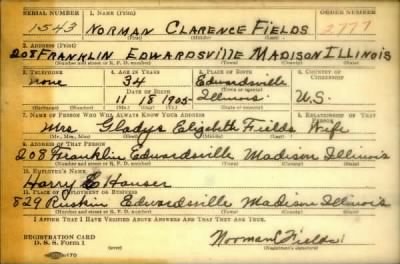 SERIAL NUMBER 1. NAME (Print) ORDER NUMBER
1543 NORMAN CLARENCE FIELDS 2777
(First) (Middle) (Last)
2. ADDRESS (Print)
208 FRANKLIN EDWARDSVILLE MADISON ILLINOIS
(Number and street or R. F. D. number) (Town) (County) (State)
3. TELEPHONE 4. AGE IN YEARS 5. PLACE OF BIRTH 6. COUNTRY OF CITIZENSHIP
none 34 Edwardsville
DATE OF BIRTH (Town or county)
11 18 1905 Illinois U.S.
(Exchange) (Number) (Mo.) (Day) (Yr.) (State or country)
7. NAME OF PERSON WHO WILL ALWAYS KNOW YOUR ADDRESS 8. RELATIONSHIP OF THAT PERSON
Mrs. Gladys Elizabeth Fields Wife
(Mr., Mrs., Miss) (First) (Middle) (Last)
9. ADDRESS OF THAT PERSON
208 Franklin Edwardsville Madison Illinois
(Number and street or R. F. D. number) (Town) (County) (State)
10. EMPLOYER'S NAME
Harry E Hauser
11. PLACE OF EMPLOYMENT OR BUSINESS
829 Ruskin Edwardsville Madison Illinois
(Number and street or R. F. D. number) (Town) (County) (State)
I AFFIRM THAT I HAVE VERIFIED ABOVE ANSWERS AND THAT THEY ARE TRUE.
REGISTRATION CARD
D. S. S. Form 1 Norman C Fields
(Registrant's signature)